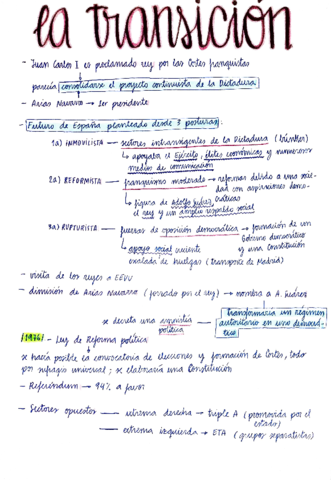 la transición
- Juan Carlos I es proclamado rey por las Cortes franquistas
parecía consolidarse el proyecto continuista de la Dictadura
- Arias Navarro → 1er presidente
- Futuro de España planteado desde 3 posturas:
1a) INMOVILISTA → sectores intransigentes de la Dictadura (búnker)
↳ apoyaba el Ejército, élites económicas y numerosos
medios de comunicación
2a) REFORMISTA → franquismo moderado → reformas debido a una socie-
dad con aspiraciones demo-
cráticas
↳ figura de Adolfo Suárez,
el rey y un amplio respaldo social
3a) RUPTURISTA → fuerzas de oposición democrática → formación de un
Gobierno democrático
y una Constitución
↳ apoyo social creciente
oxalada de huelgas (transporte de Madrid)
- visita de los reyes a EEUU
- dimisión de Arias Navarro (forzado por el rey) → nombra a A. Suárez
transformaría un régimen
autoritario en uno democrá-
tico
se decreta una amnistía
política
/1976/ - Ley de Reforma política
se hacía posible la convocatoria de elecciones y formación de Cortes, todo
por sufragio universal; se elaboraría una Constitución
- Referéndum → 94% a favor
- Sectores opuestos → extrema derecha → triple A (promovida por el
estado)
→ extrema izquierda → ETA (grupos separatistas)